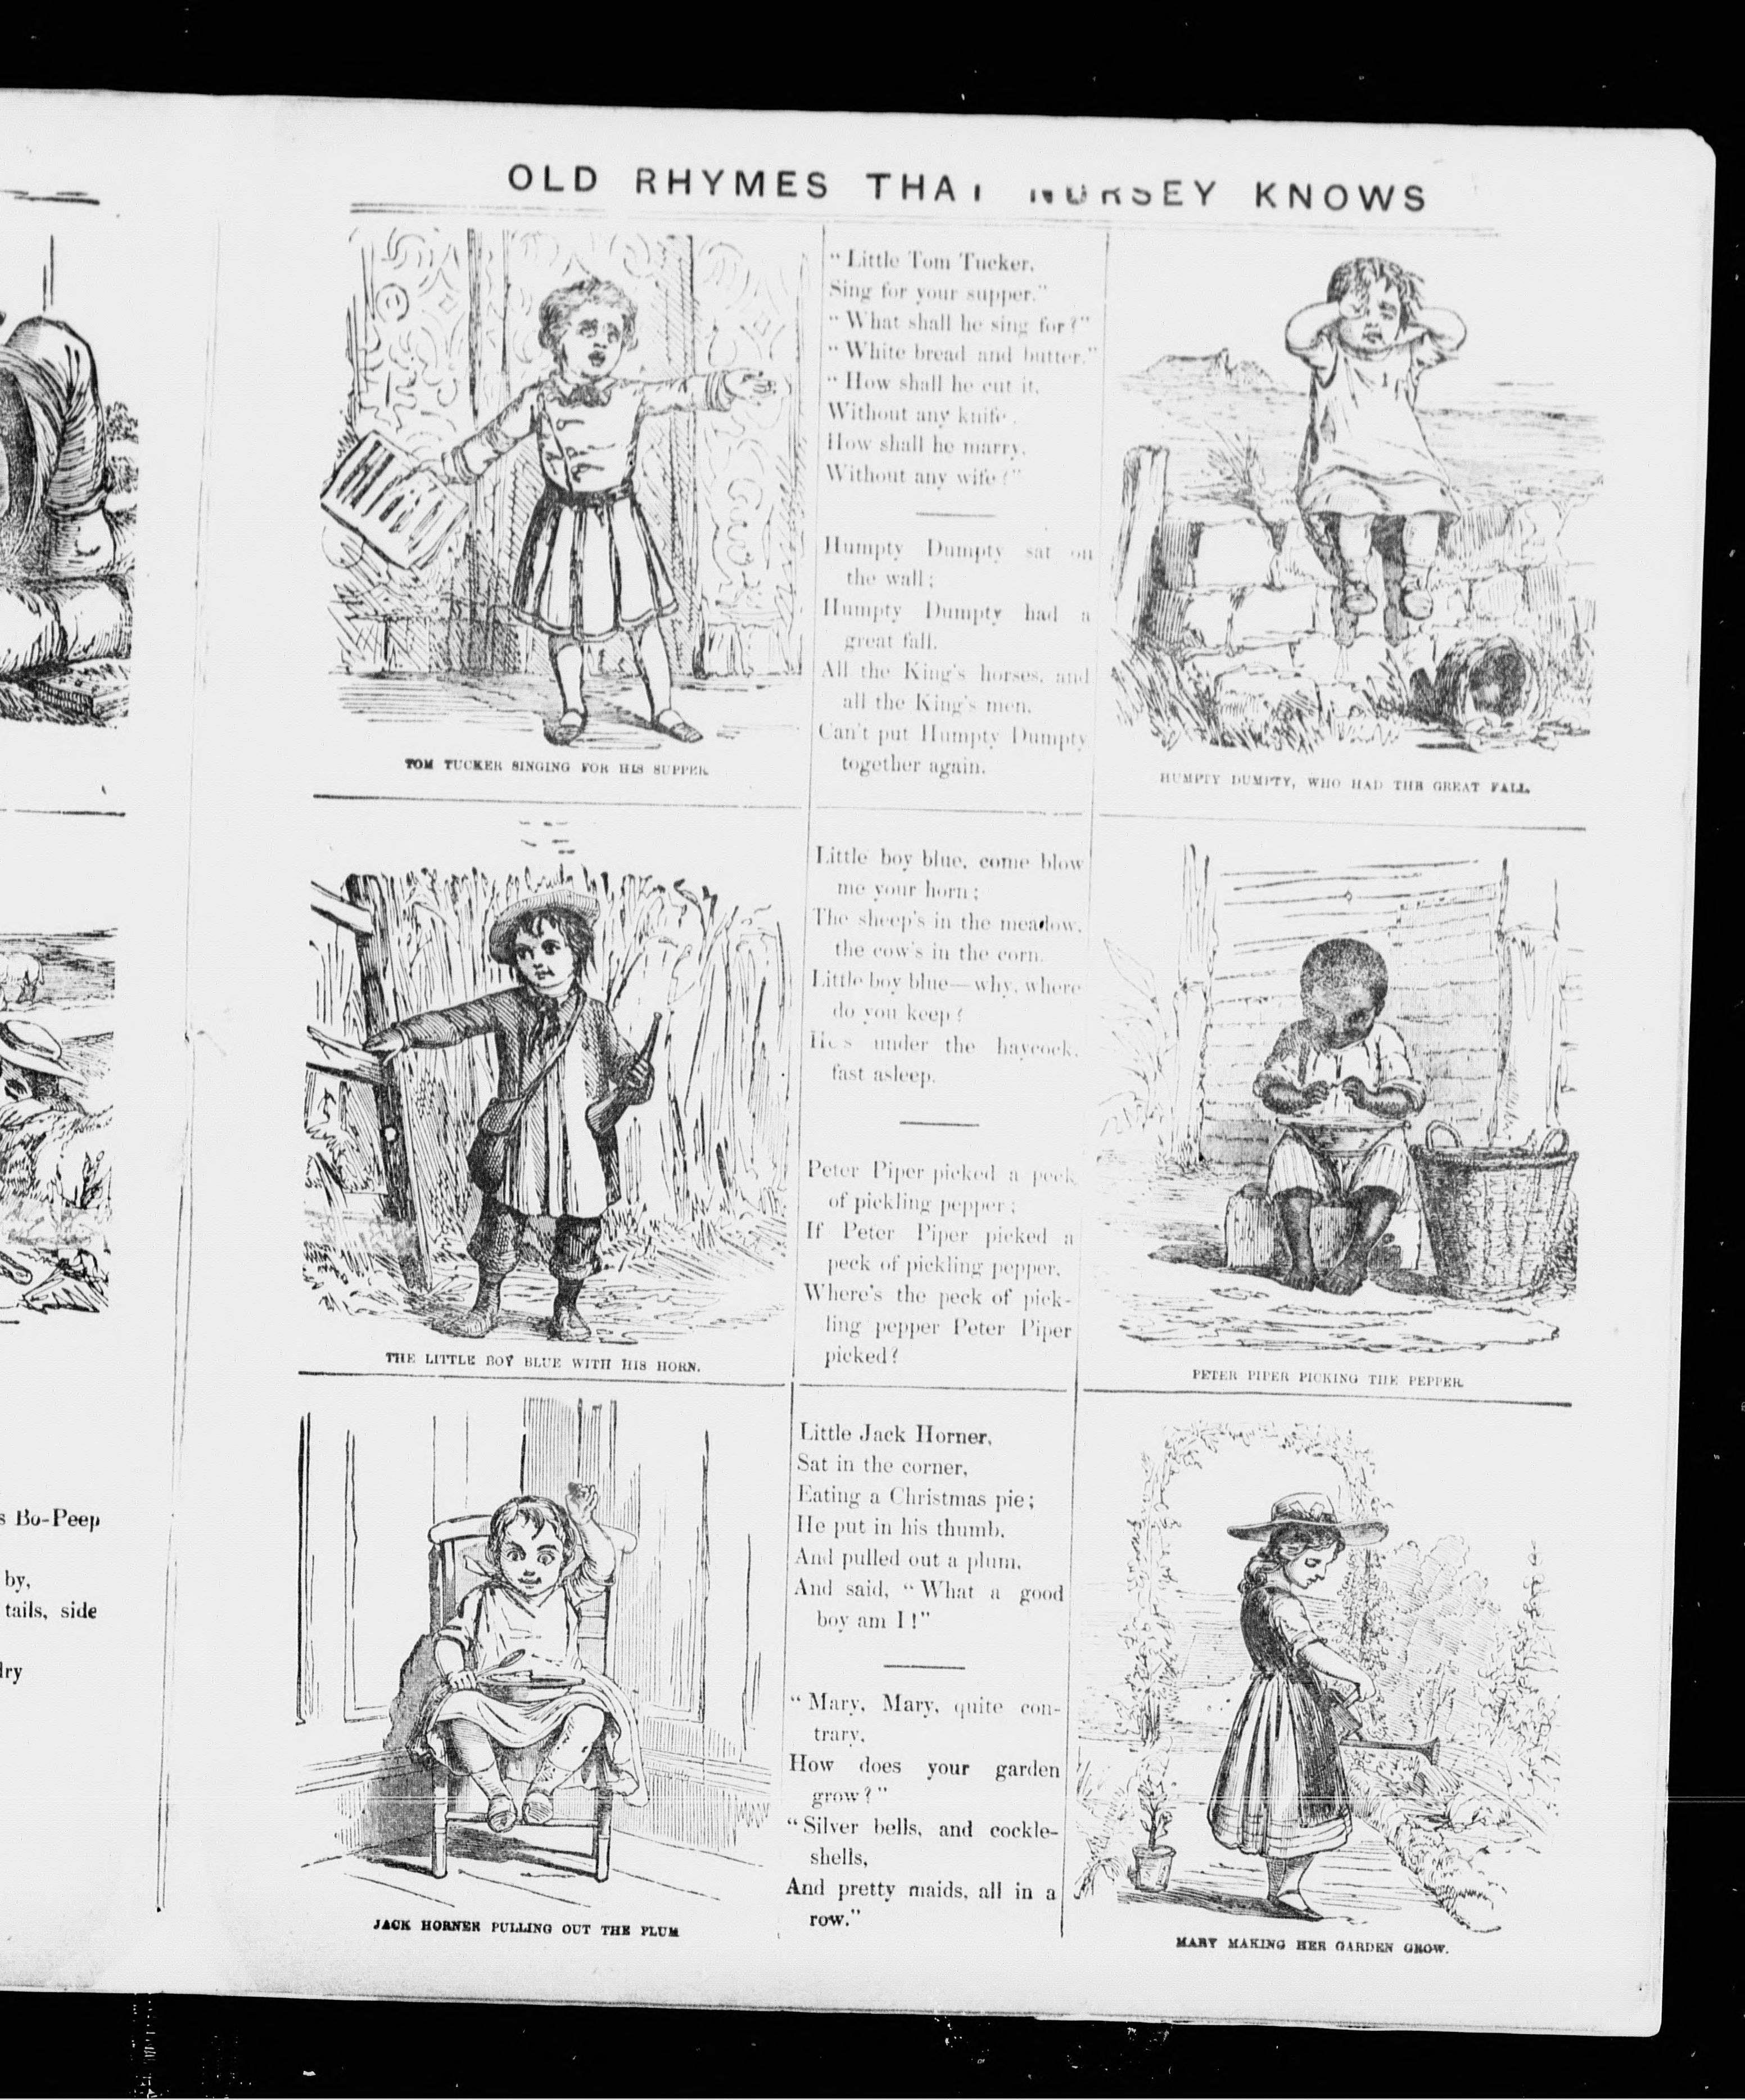 OLD RHYMES THAT NURSEY KNOWS
"Little Tom Tucker,
Sing for your supper."
"What shall he sing for?"
"White bread and butter."
"How shall he cut it,
Without any knife.
How shall he marry,
Without any wife?"
TOM TUCKER SINGING FOR HIS SUPPER.
Humpty Dumpty sat on
the wall;
Humpty Dumpty had a
great fall.
All the King's horses, and
all the King's men,
Can't put Humpty Dumpty
together again.
HUMPTY DUMPTY, WHO HAD THE GREAT FALL.
Little boy blue, come blow
me your horn;
The sheep's in the meadow,
the cow's in the corn.
Little boy blue—why, where
do you keep?
He's under the haycock,
fast asleep.
THE LITTLE BOY BLUE WITH HIS HORN.
Peter Piper picked a peck
of pickling pepper;
If Peter Piper picked a
peck of pickling pepper,
Where's the peck of pick-
ling pepper Peter Piper
picked?
PETER PIPER PICKING THE PEPPER.
Little Jack Horner,
Sat in the corner,
Eating a Christmas pie;
He put in his thumb,
And pulled out a plum,
And said, "What a good
boy am I!"
JACK HORNER PULLING OUT THE PLUM
"Mary, Mary, quite con-
trary,
How does your garden
grow?"
"Silver bells, and cockle-
shells,
And pretty maids, all in a
row."
MARY MAKING HER GARDEN GROW.
s Bo-Peep
by,
tails, side
dry